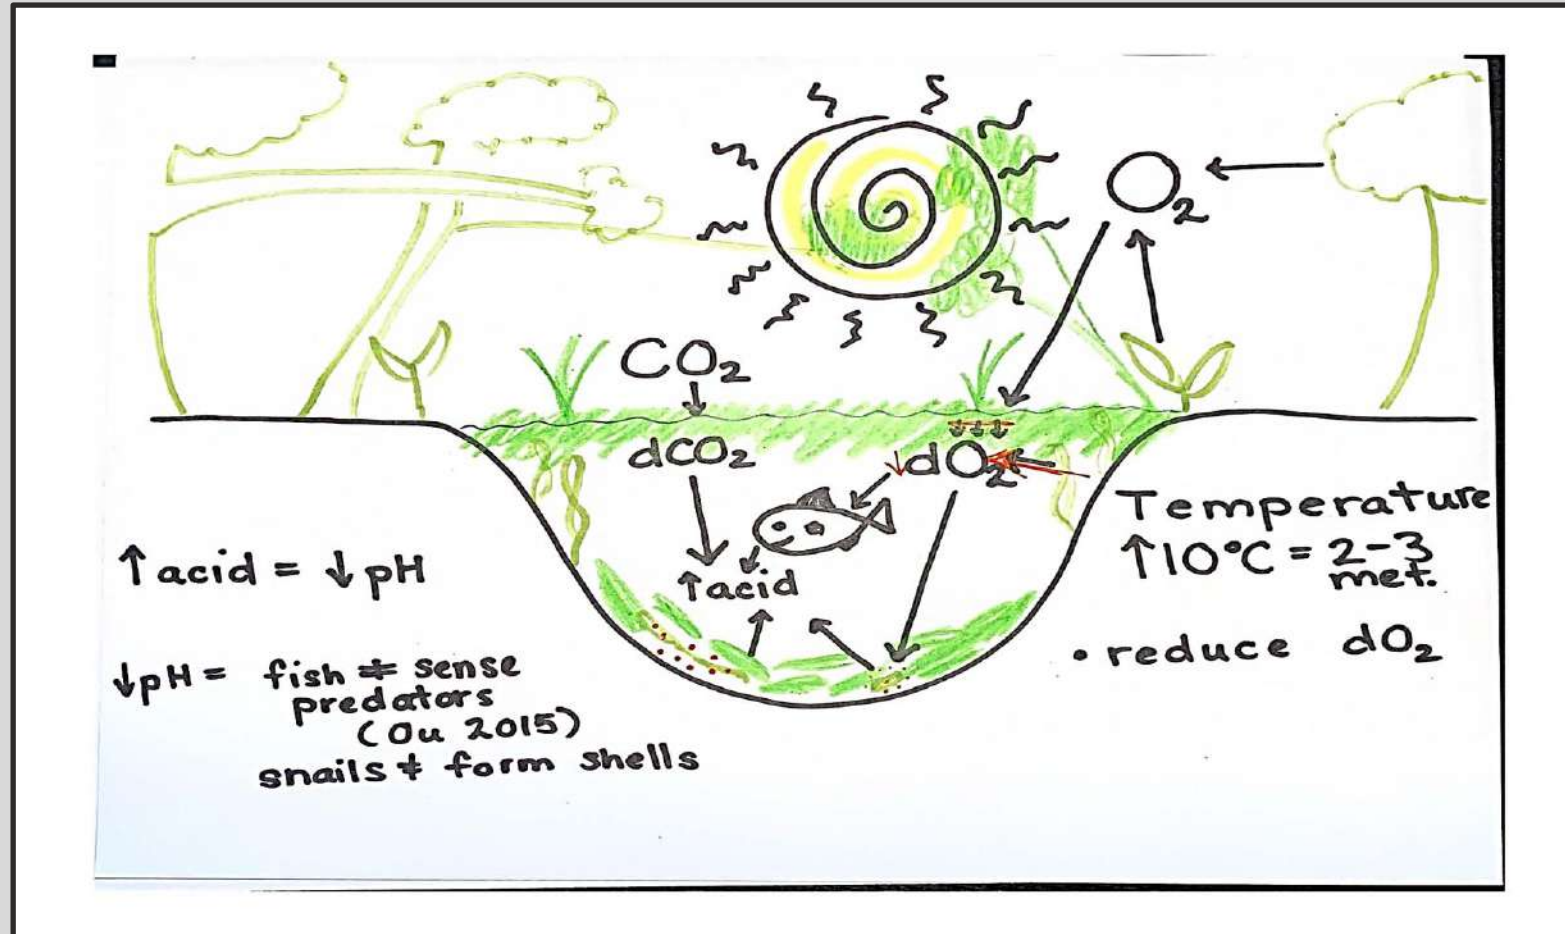 O₂
CO₂
dCO₂
↓dO₂
↑acid
↑acid = ↓pH
↓pH = fish ≠ sense
predators
(Ou 2015)
snails ≠ form shells
Temperature
↑10°C = 2-3
met.
• reduce dO₂